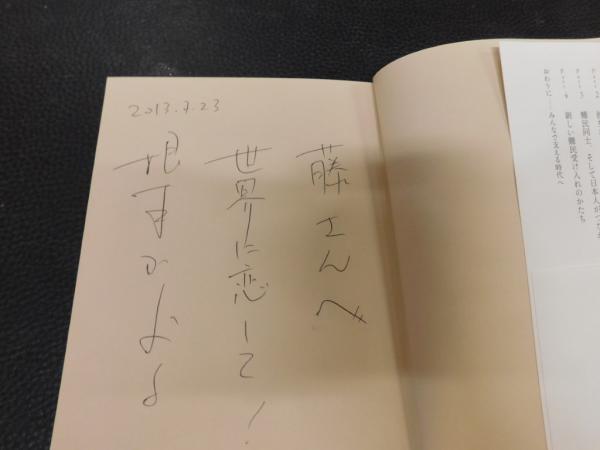 2013.7.23
藤さんへ
世界に恋して!
根本かおる
難民同士、そして日本人がつなが
新しい難民受け入れのかたち
おわりに――みんなで支える時代へ